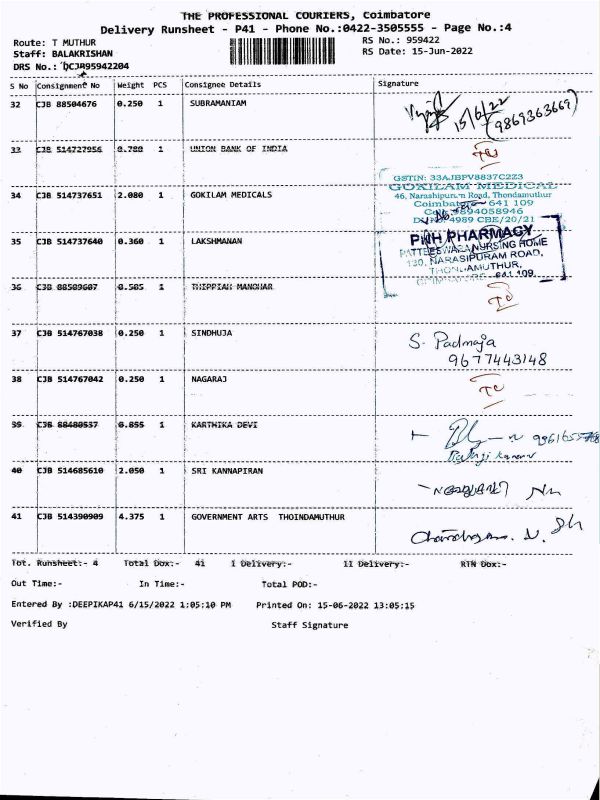 THE PROFESSIONAL COURIERS, Coimbatore
Delivery Runsheet - P41 - Phone No.:0422-3505555 - Page No.:4
Route: T MUTHUR
RS No.: 959422
Staff: BALAKRISHAN
RS Date: 15-Jun-2022
DRS No.: DCJR95942204
S No Consignment No Weight PCS Consignee Details Signature
32 CJB 88504676 0.250 1 SUBRAMANIAM
15/6/22
(9869363669)
33 CJB 514727956 0.780 1 UNION BANK OF INDIA
34 CJB 514737651 2.080 1 GOKILAM MEDICALS
GSTIN: 33AJBPV8837C2Z3
GOKILAM MEDICAL
46, Narashipuram Road, Thondamuthur
Coimbatore 641 109
9894058946
4989 CBE/20/21
35 CJB 514737640 0.360 1 LAKSHMANAN
PKH PHARMACY
NURSING HOME
130, NARASIPURAM ROAD,
THONDAMUTHUR,
641 109
36 CJB 88509607 0.505 1 THIPPIAH MANOHAR
37 CJB 514767038 0.250 1 SINDHUJA
S. Padmaja
9677443148
38 CJB 514767042 0.250 1 NAGARAJ
39 CJB 88480537 0.855 1 KARTHIKA DEVI
40 CJB 514685610 2.050 1 SRI KANNAPIRAN
41 CJB 514390909 4.375 1 GOVERNMENT ARTS THOINDAMUTHUR
Tot. Runsheet:- 4 Total Dox:- 41 I Delivery:- II Delivery:- RTN Dox:-
Out Time:- In Time:- Total POD:-
Entered By :DEEPIKAP41 6/15/2022 1:05:10 PM Printed On: 15-06-2022 13:05:15
Verified By Staff Signature